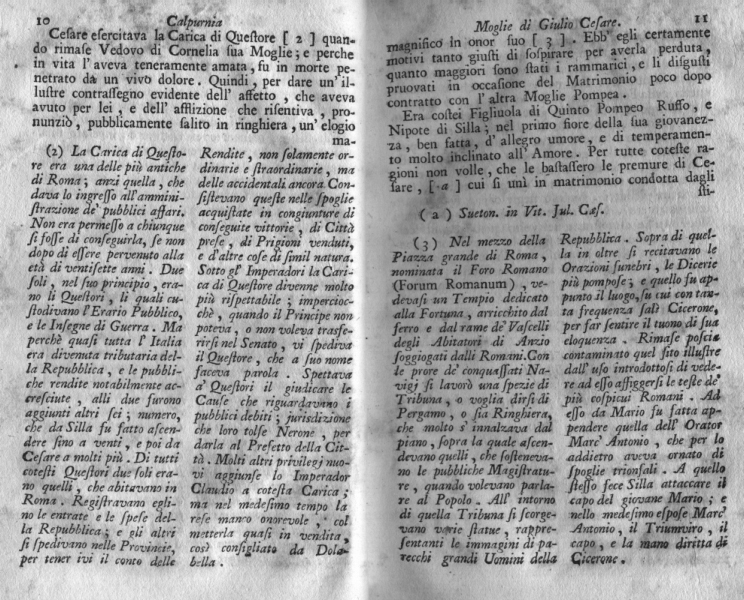 10 Calpurnia
Cesare esercitava la Carica di Questore [ 2 ] quan-
do rimase Vedovo di Cornelia sua Moglie; e perche
in vita l'aveva teneramente amata, fu in morte pe-
netrato da un vivo dolore. Quindi, per dare un'il-
lustre contrassegno evidente dell' affetto, che aveva
avuto per lei, e dell' afflizione che risentiva, pro-
nunziò, pubblicamente salito in ringhiera, un'elogio
ma-
(2) La Carica di Questo-
re era una delle più antiche
di Roma; anzi quella, che
dava lo ingresso all'ammini-
strazione de' pubblici affari.
Non era permesso a chiunque
si fosse di conseguirla, se non
dopo di essere pervenuto alla
età di ventisette anni. Due
soli, nel suo principio, era-
no li Questori, li quali cu-
stodivano l'Erario Pubblico,
e le Insegne di Guerra. Ma
perchè quasi tutta l'Italia
era divenuta tributaria del-
la Repubblica, e le pubbli-
che rendite notabilmente ac-
cresciute, alli due furono
aggiunti altri sei; numero,
che da Silla fu fatto ascen-
dere sino a venti, e poi da
Cesare a molti più. Di tutti
cotesti Questori due soli era-
no quelli, che abitavano in
Roma. Registravano egli-
no le entrate e le spese del-
la Repubblica; e gli altri
si spedivano nelle Provincie,
per tener ivi il conto delle
Rendite, non solamente or-
dinarie e straordinarie, ma
delle accidentali ancora. Con-
sistevano queste nelle spoglie
acquistate in congiunture di
conseguite vittorie, di Città
prese, di Prigioni venduti,
e d'altre cose di simil natura.
Sotto gl' Imperadori la Cari-
ca di Questore divenne molto
più rispettabile; impercioc-
chè, quando il Principe non
poteva, o non voleva trasfe-
rirsi nel Senato, vi spediva
il Questore, che a suo nome
faceva parola. Spettava
a' Questori il giudicare le
Cause che riguardavano i
pubblici debiti; jurisdizione
che loro tolse Nerone, per
darla al Prefetto della Cit-
tà. Molti altri privilegj nuo-
vi aggiunse lo Imperador
Claudio a cotesta Carica;
ma nel medesimo tempo la
rese manco onorevole, col
metterla quasi in vendita,
così consigliato da Dola-
bella.
Moglie di Giulio Cesare. 11
magnifico in onor suo [ 3 ]. Ebb' egli certamente
motivi tanto giusti di sospirare per averla perduta,
quanto maggiori sono stati i rammarici, e li disgusti
pruovati in occasione del Matrimonio poco dopo
contratto con l'altra Moglie Pompea.
Era costei Figliuola di Quinto Pompeo Ruffo, e
Nipote di Silla; nel primo fiore della sua giovanez-
za, ben fatta, d'allegro umore, e di temperamen-
to molto inclinato all'Amore. Per tutte coteste ra-
gioni non volle, che le bastassero le premure di Ce-
sare, [ a ] cui si unì in matrimonio condotta dagli
sti-
( a ) Sueton. in Vit. Jul. Cæs.
(3) Nel mezzo della
Piazza grande di Roma,
nominata il Foro Romano
(Forum Romanum), ve-
devasi un Tempio dedicato
alla Fortuna, arricchito dal
ferro e dal rame de' Vascelli
degli Abitatori di Anzio
soggiogati dalli Romani. Con
le prore de' conquassati Na-
vigj si lavorò una spezie di
Tribuna, o voglia dirsi di
Pergamo, o sia Ringhiera,
che molto s' innalzava dal
piano, sopra la quale ascen-
devano quelli, che sosteneva-
no le pubbliche Magistratu-
re, quando volevano parla-
re al Popolo. All' intorno
di quella Tribuna si scorge-
vano varie statue, rappre-
sentanti le immagini di pa-
recchi grandi Uomini della
Repubblica. Sopra di quel-
la in oltre si recitavano le
Orazioni funebri, le Dicerie
più pompose; e quello fu ap-
punto il luogo, su cui con tan-
ta frequenza salì Cicerone,
per far sentire il tuono di sua
eloquenza. Rimase poscia
contaminato quel sito illustre
dall' uso introdottosi di vede-
re ad esso affiggersi le teste de'
più cospicui Romani. Ad
esso da Mario fu fatta ap-
pendere quella dell' Orator
Marc' Antonio, che per lo
addietro aveva ornato di
spoglie trionfali. A quello
stesso fece Silla attaccare il
capo del giovane Mario; e
nello medesimo espose Marc'
Antonio, il Triumviro, il
capo, e la mano diritta di
Cicerone.